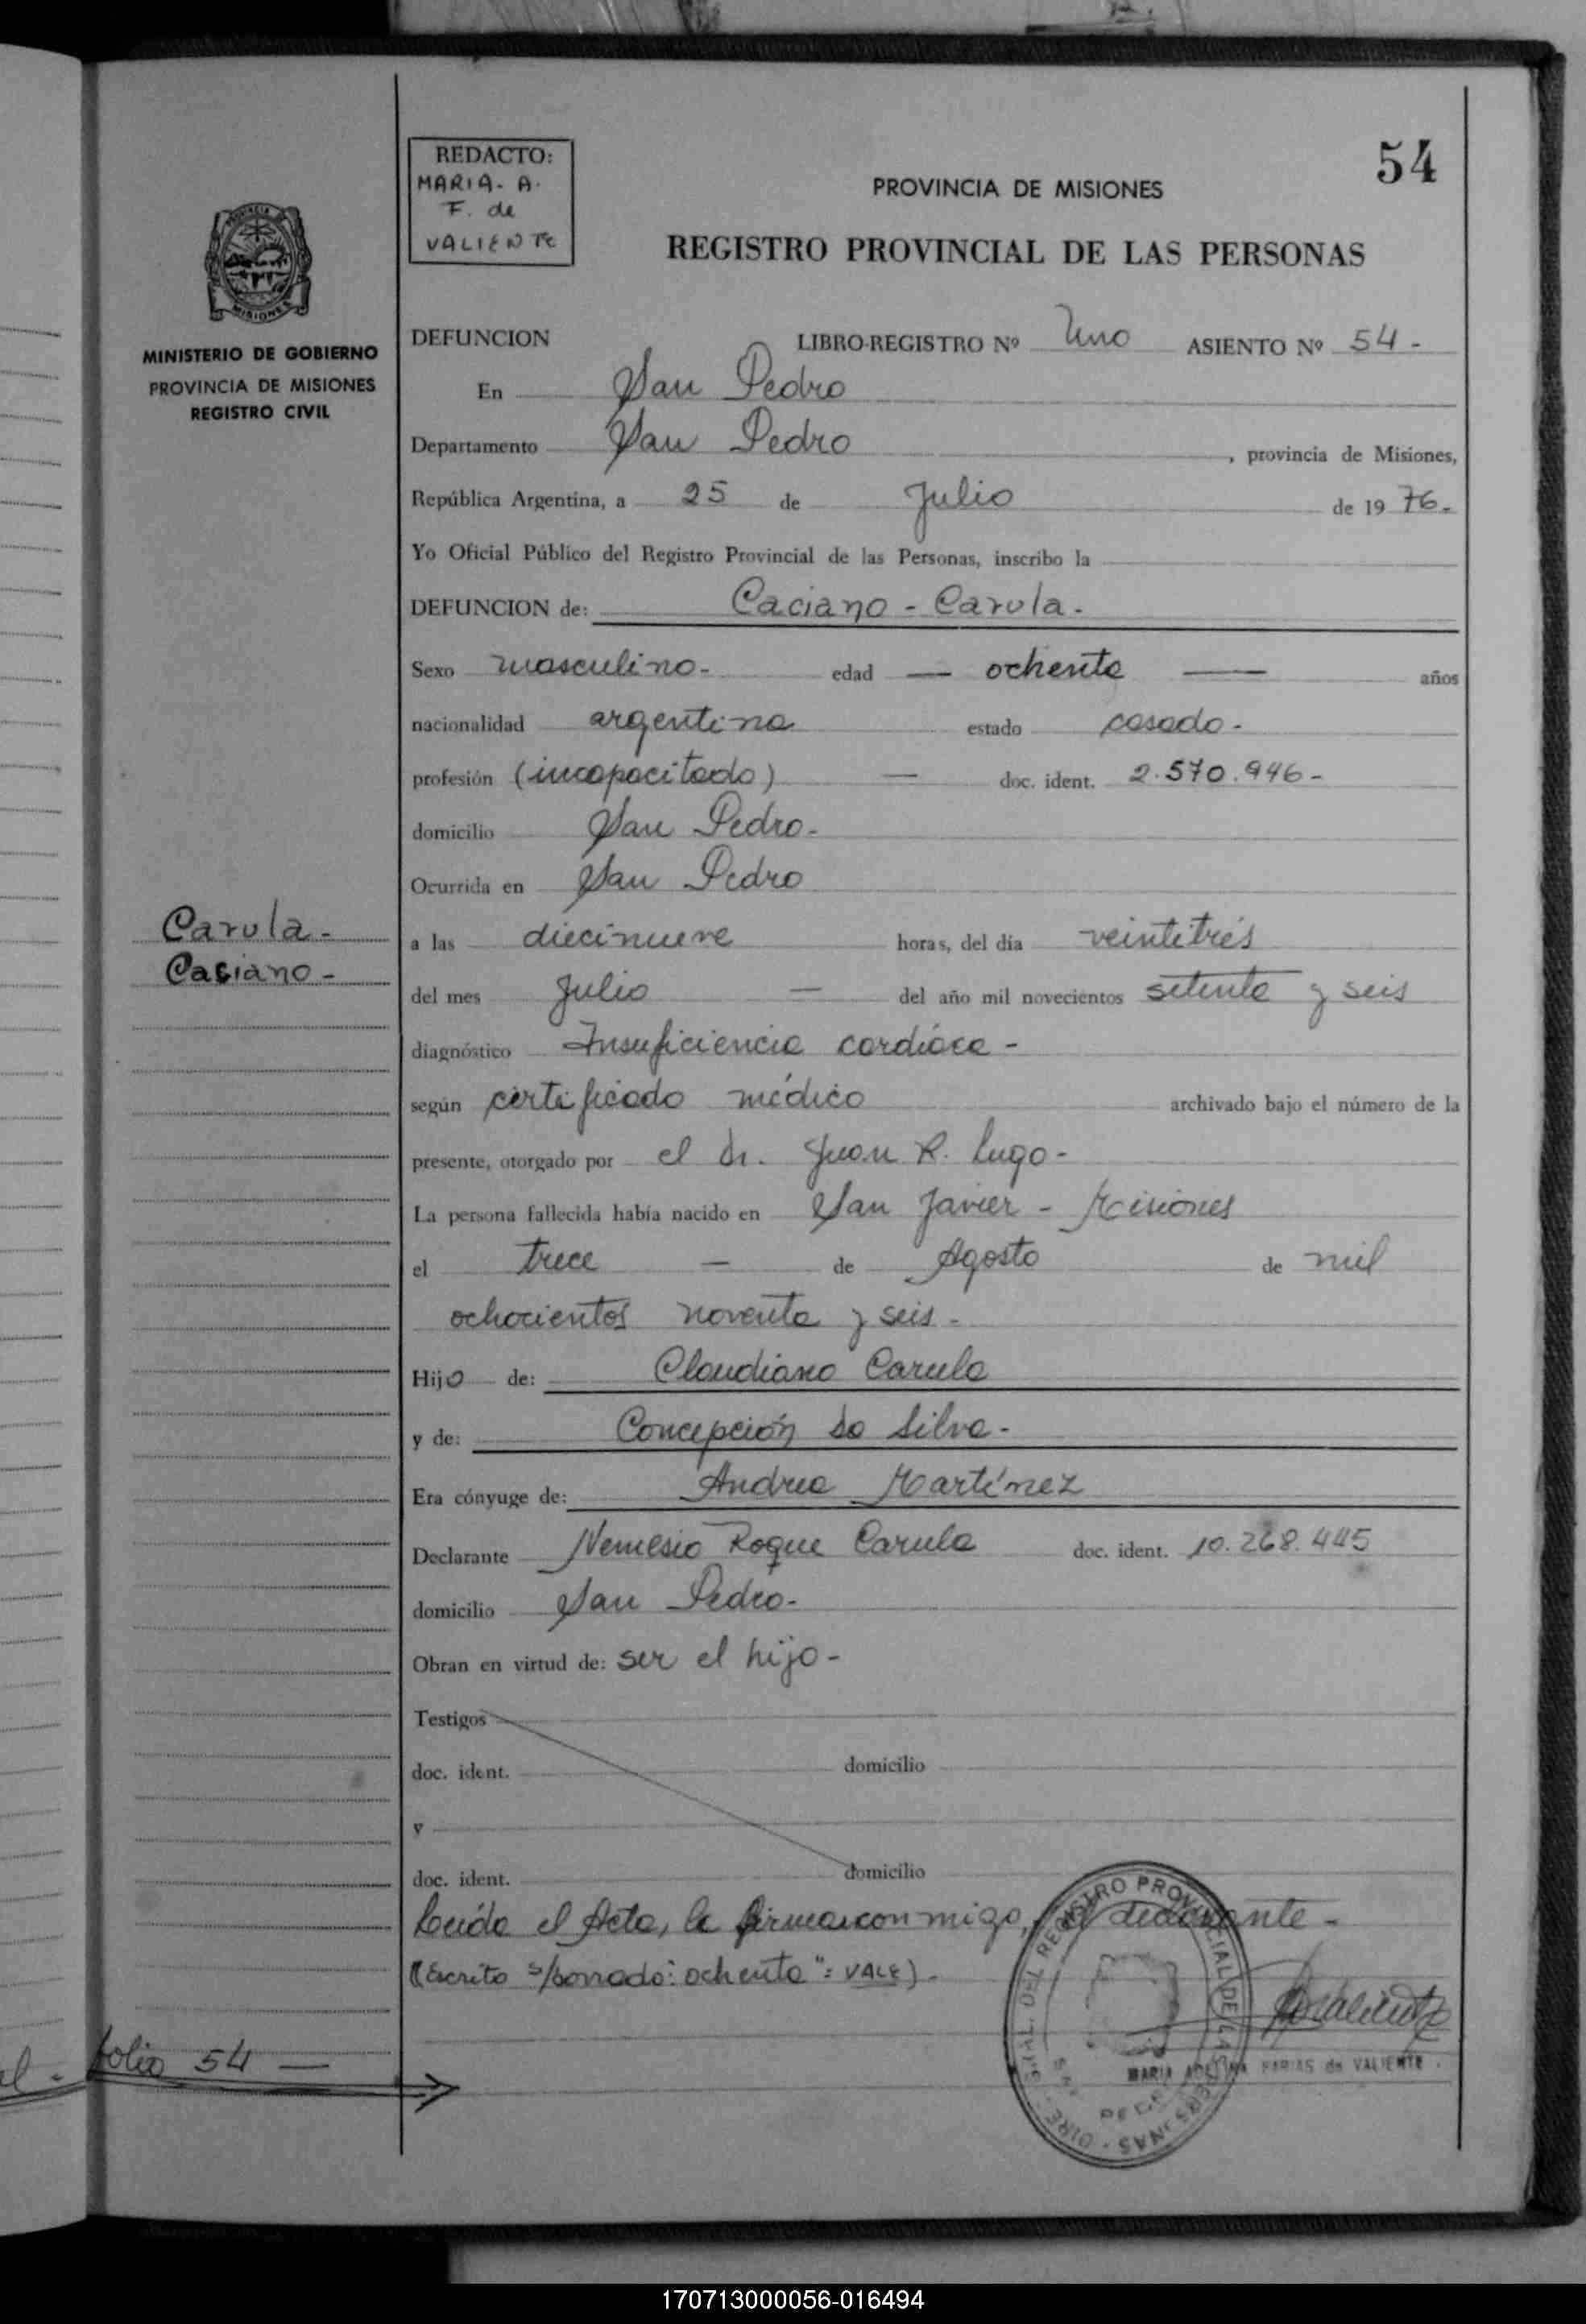 54
REDACTO:
MARIA. A.
F. de
VALIENTE
PROVINCIA DE MISIONES
REGISTRO PROVINCIAL DE LAS PERSONAS
MISIONES
MINISTERIO DE GOBIERNO
PROVINCIA DE MISIONES
REGISTRO CIVIL
DEFUNCION LIBRO-REGISTRO Nº Uno ASIENTO Nº 54 -
En San Pedro
Departamento San Pedro , provincia de Misiones,
República Argentina, a 25 de Julio de 19 76.
Yo Oficial Público del Registro Provincial de las Personas, inscribo la
DEFUNCION de: Caciano - Carula.
Sexo masculino- edad — ochenta — años
nacionalidad argentina estado casado -
profesión (incapacitado) — doc. ident. 2.570.946-
domicilio San Pedro-
Ocurrida en San Pedro
Carula-
Caciano-
a las diecinueve horas, del día veintitrés
del mes Julio — del año mil novecientos setenta y seis
diagnóstico Insuficiencia cardíaca -
según certificado médico archivado bajo el número de la
presente, otorgado por el Dr. Juan R. Lugo-
La persona fallecida había nacido en San Javier - Misiones
el trece — de Agosto de mil
ochocientos noventa y seis -
Hijo de: Claudiano Carula
y de: Concepción Da Silva-
Era cónyuge de: Andrea Martínez
Declarante Nemesio Roque Carula doc. ident. 10.268.445
domicilio San Pedro-
Obran en virtud de: ser el hijo -
Testigos
doc. ident. domicilio
y
doc. ident. domicilio
Leída el Acta, la firma con migo, el declarante -
(Escrito s/borrado: "ochenta": VALE) -
REGISTRO PROVINCIAL DE LAS PERSONAS
MARIA ADELINA FARIAS de VALIENTE
folio 54 —
170713000056-016494